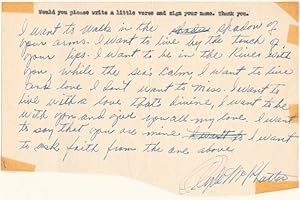 Would you please write a little verse and sign your name. Thank you.
I want to walk in the shadow of
your arms. I want to live by the touch of
your lips. I want to be in the with
you, while the sea's calm, I want to live
and love I don't want to miss. I want to
live with a love that's divine, I want to be
with you and give you all my love, I want
to say that you are mine I want
to ask faith from the one above.
Clyde McPhatter